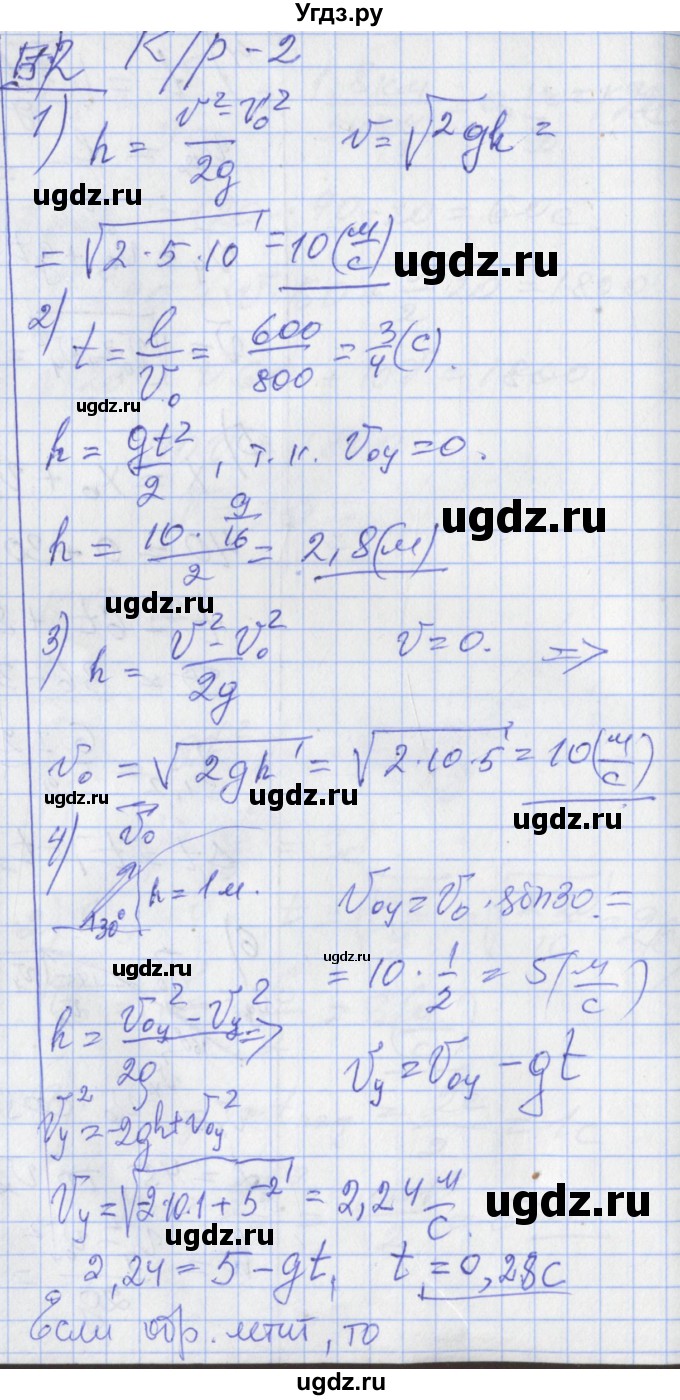 Угдз.ру
В2 К/р - 2
1) h = (v² - v₀²)/2g v = √2gh =
ugdz.ru
= √2·5·10 = 10 (м/с)
ugdz.ru
2) t = l/v₀ = 600/800 = 3/4 (с).
ugdz.ru
h = gt²/2, т.к. v₀y = 0.
ugdz.ru
h = (10 · 9/16)/2 = 2,8 (м)
ugdz.ru
3) h = (v² - v₀²)/2g v = 0. ⇒
v₀ = √2gh = √2·10·5 = 10 (м/с)
ugdz.ru
ugdz.ru
ugdz.ru
4) v₀
30° h = 1 м. v₀y = v₀ · sin30 =
ugdz.ru
ugdz.ru
= 10 · 1/2 = 5 (м/с)
h = (v₀y² - vy²)/2g ⇒ vy = v₀y - gt
vy² = -2gh + v₀y²
vy = √-2·10·1 + 5² = 2,24 м/с.
ugdz.ru
ugdz.ru
2,24 = 5 - gt, t = 0,28с
Если обр. летит, то